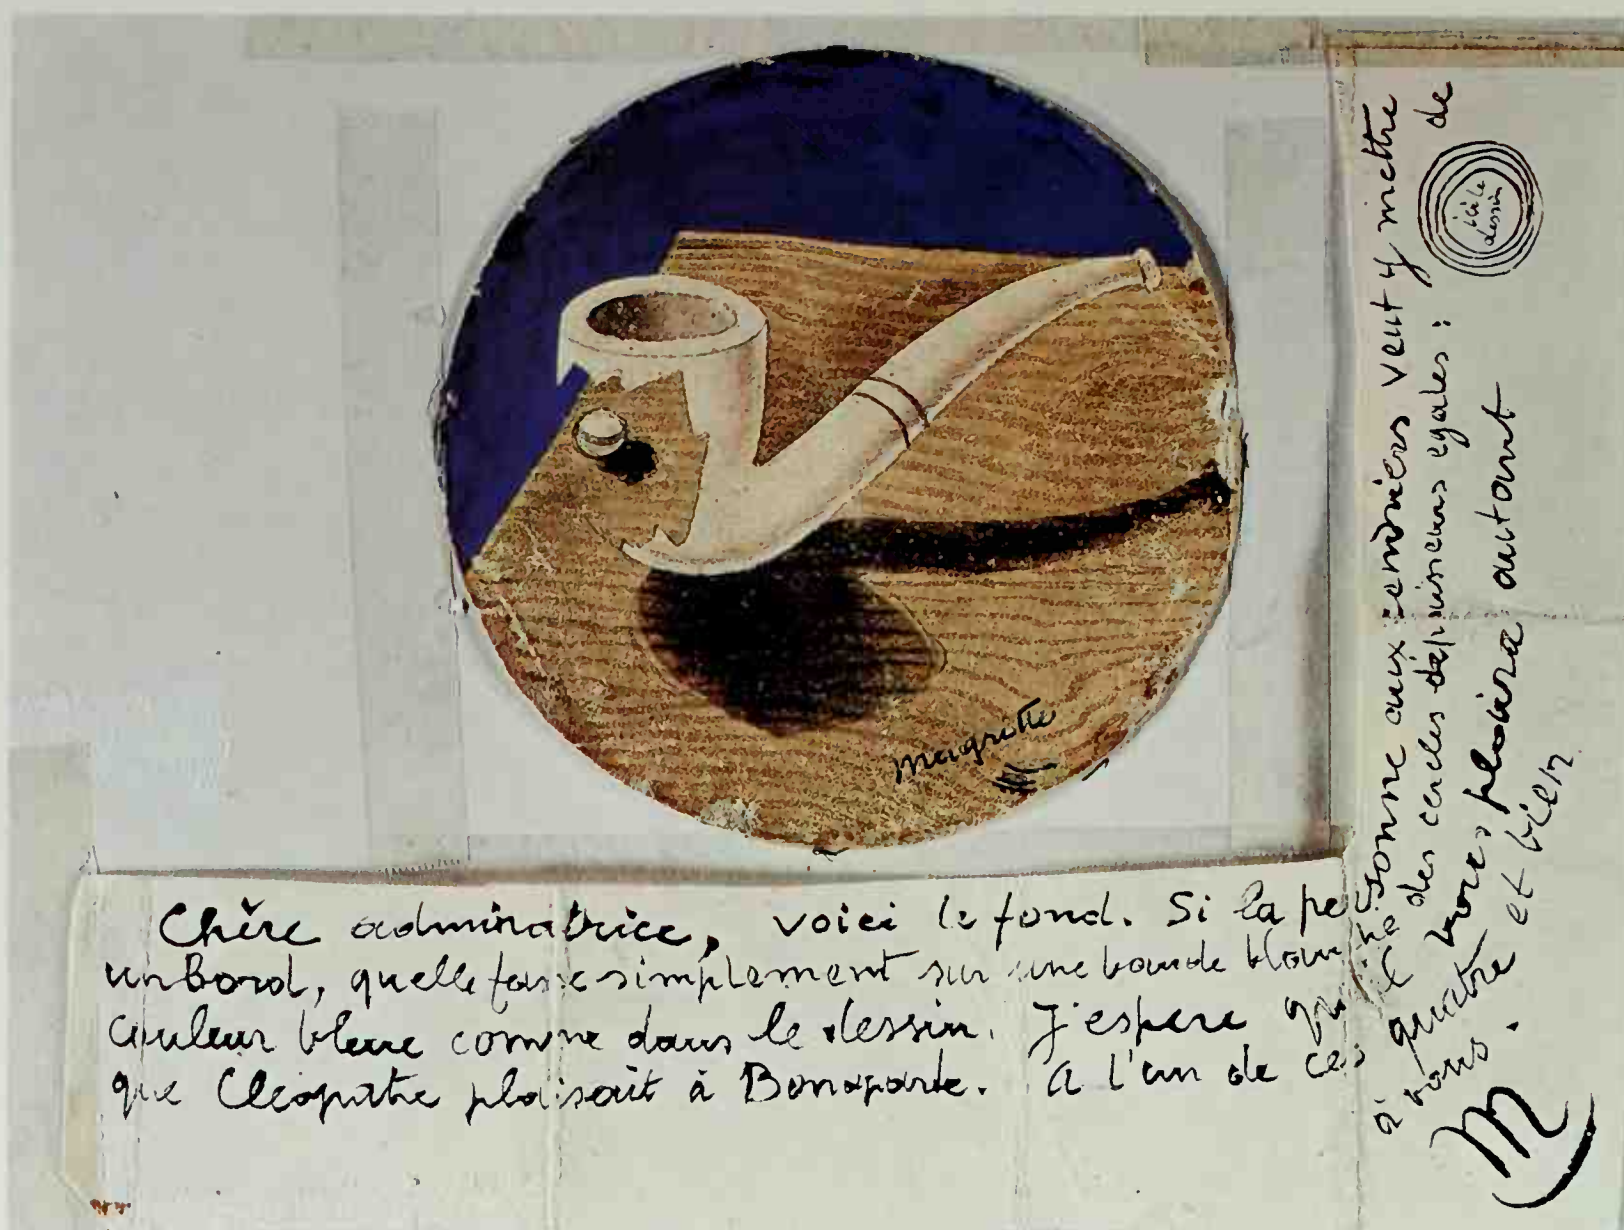 magritte
Chère adminatrice, voici le fond. Si la personne aux cendriers veut y mettre
un bord, quelle fasse simplement sur une bande blanche des cercles dépaisseurs égales : ici le dessin de
couleur bleue comme dans le dessin. J'espere qu'il vous plaira autant
que Cléopatre plaisait à Bonaparte. A l'un de ces quatre et bien
à vous.
M